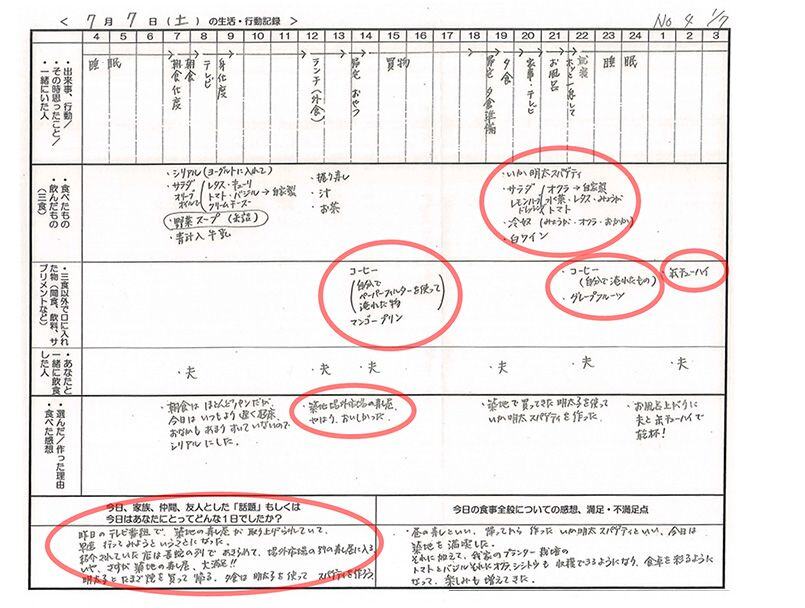 < 7月 7日(土)の生活・行動記録 >
No 4 1/7
4 5 6 7 8 9 10 11 12 13 14 15 16 17 18 19 20 21 22 23 24 1 2 3
・出来事、行動/
その時思ったこと/
・一緒にいた人
睡眠
朝食仕度
朝食
テレビ
身仕度
ランチ(外食)
帰宅 おやつ
買物
帰宅 夕食準備
夕食
家事・テレビ
お風呂
就寝
睡眠
・食べたもの
飲んだもの
(三食)
・シリアル(ヨーグルトに入れて)
・サラダ
オリーブオイル
レタス・キューリ
トマト・バジル→自家製
クリームチーズ
・野菜スープ(缶詰)
・青汁入牛乳
・握り寿し
・汁
・お茶
・いか明太スパゲティ
・サラダ
レモンハーブ
ドレッシング
オクラ→自家製
水菜・レタス・みょうが
トマト
・冷奴(みょうが・オクラ・おかか)
・白ワイン
・三食以外で口に入れ
た物(間食、飲料、サ
プリメントなど)
コーヒー
(自分で
ペーパーフィルターを使って
淹れた物)
マンゴープリン
・コーヒー
(自分で淹れたもの)
・グレープフルーツ
・缶チューハイ
・あなたと
一緒に飲食
した人
・夫 ・夫 ・夫 ・夫 ・夫 ・夫
・選んだ/作った理由
・食べた感想
・朝食はほとんどパンだが、
今日はいつもより遅く起床、
おなかもあまりすいていないので
シリアルにした。
・築地場外市場の寿し屋、
やはり、おいしかった。
・築地で買ってきた明太子を使って
いか明太スパゲティを作った。
・お風呂上がりに
夫と缶チューハイで
乾杯!
今日、家族、仲間、友人とした「話題」もしくは
今日はあなたにとってどんな1日でしたか?
昨日のテレビ番組で、築地の寿し屋が取り上げられていて、
早速行ってみようということになった。
紹介されていた店は長蛇の列であきらめて、場外市場の別の寿し屋に入る
いや、さすが築地の寿し屋、大満足!!
明太子とたまご焼を買って帰る。夕食は明太子を使ってスパゲティを作ろう。
今日の食事全般についての感想、満足・不満足点
・昼の寿しといい、帰ってから作ったいか明太スパゲティといい、今日は
築地を満喫した。
それに加えて、我家のプランター栽培の
トマトとバジルそれにオクラ、シシトウも収穫できるようになり、食卓を彩るように
なって、楽しみも増えてきた。